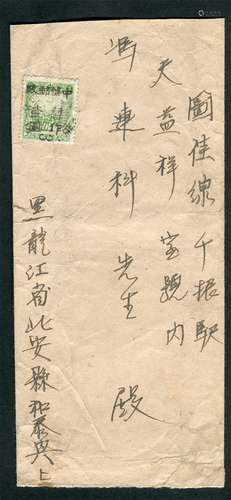 圖佳線 千振駅
天益祥宝號内
馮連科先生 殿
黑龍江省北安縣和泰興上
中華郵政